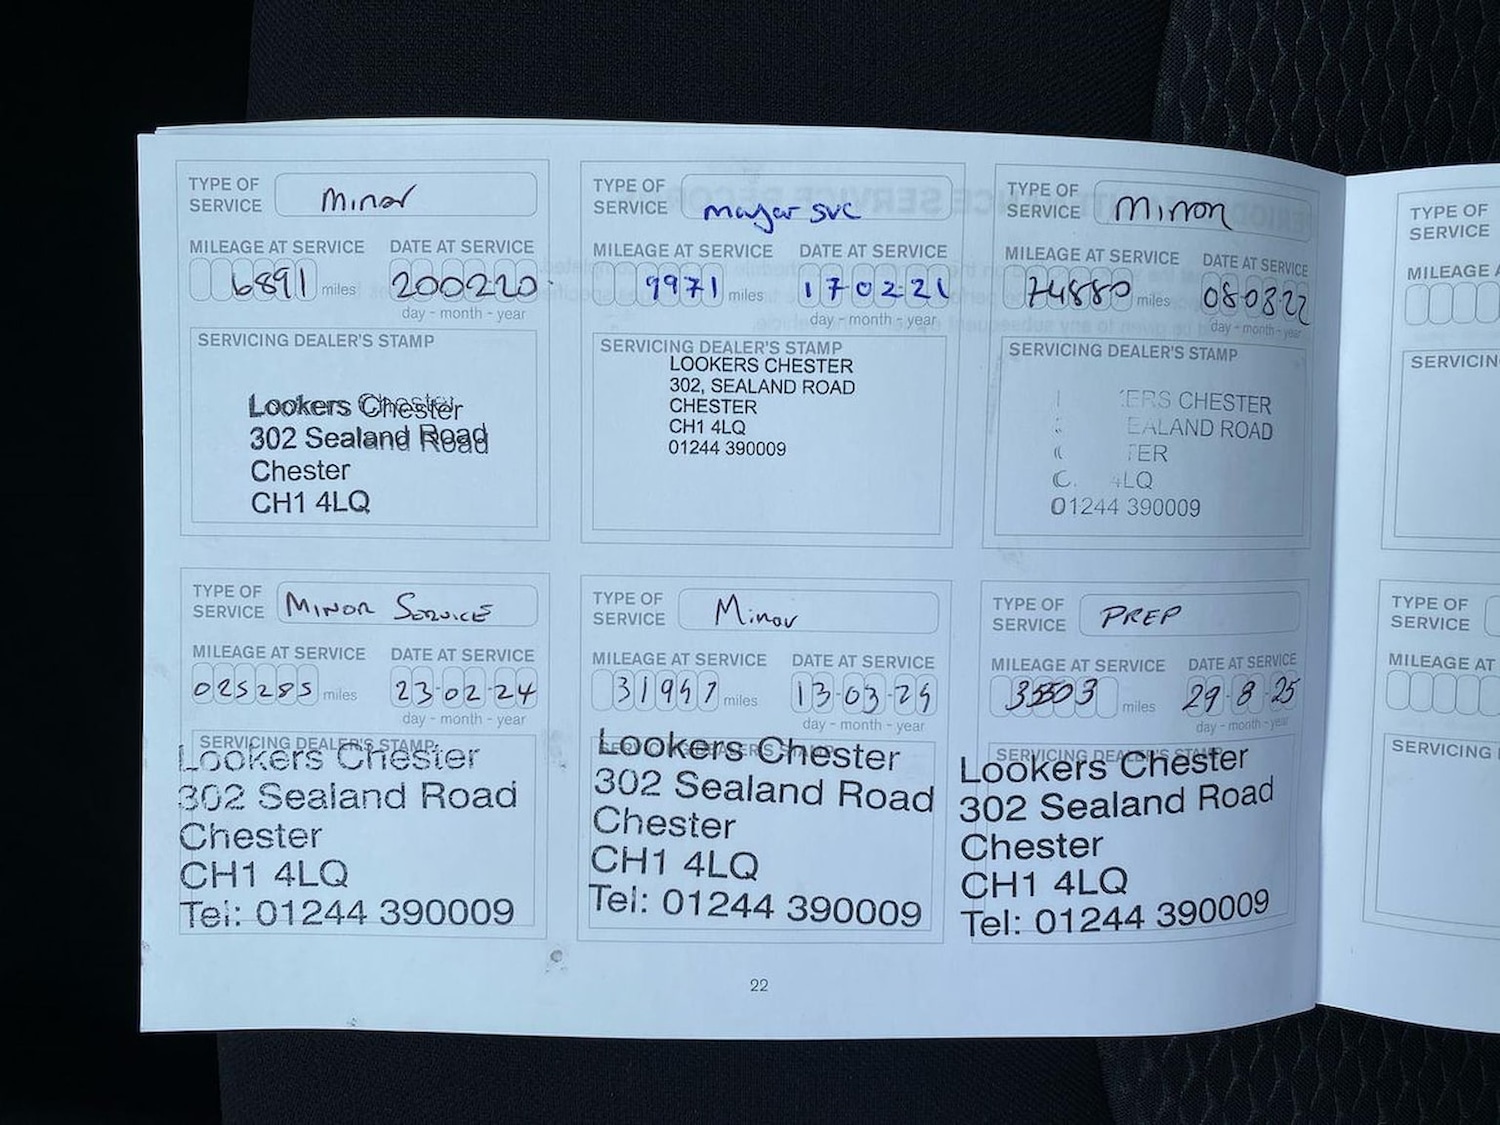 TYPE OF SERVICE Minor
MILEAGE AT SERVICE DATE AT SERVICE
6891 miles 200220
day - month - year
SERVICING DEALER'S STAMP
Lookers Chester
302 Sealand Road
Chester
CH1 4LQ
TYPE OF SERVICE major svc
MILEAGE AT SERVICE DATE AT SERVICE
9971 miles 170221
day - month - year
SERVICING DEALER'S STAMP
LOOKERS CHESTER
302, SEALAND ROAD
CHESTER
CH1 4LQ
01244 390009
TYPE OF SERVICE Minor
MILEAGE AT SERVICE DATE AT SERVICE
miles 08-03-22
day - month - year
SERVICING DEALER'S STAMP
ERS CHESTER
EALAND ROAD
TER
4LQ
01244 390009
TYPE OF SERVICE MINOR SERVICE
MILEAGE AT SERVICE DATE AT SERVICE
025285 miles 23-02-24
day - month - year
SERVICING DEALER'S STAMP
Lookers Chester
302 Sealand Road
Chester
CH1 4LQ
Tel: 01244 390009
TYPE OF SERVICE Minor
MILEAGE AT SERVICE DATE AT SERVICE
31947 miles 13-03-25
day - month - year
Lookers Chester
302 Sealand Road
Chester
CH1 4LQ
Tel: 01244 390009
TYPE OF SERVICE PREP
MILEAGE AT SERVICE DATE AT SERVICE
miles 29-8-25
day - month - year
SERVICING DEALER'S STAMP
Lookers Chester
302 Sealand Road
Chester
CH1 4LQ
Tel: 01244 390009
22
TYPE OF
SERVICE
MILEAGE
SERVICIN
TYPE OF
SERVICE
MILEAGE AT
SERVICING